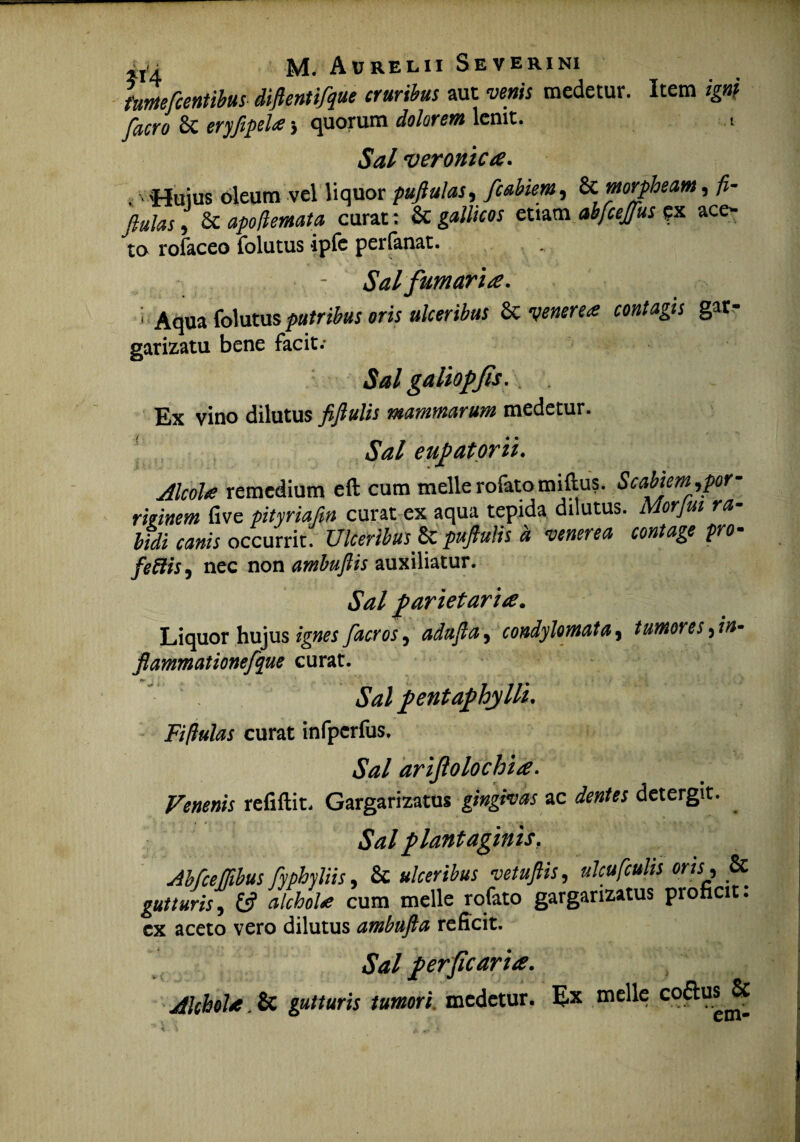 514 M. AURELII SEVERINI
tumeſcentibus diſtentiſque cruribus aut venis medetur. Item igni
ſacro & eryſipelæ; quorum dolorem lenit.
Sal veronicæ.
Hujus oleum vel liquor puſtulas, ſcabiem, & morpheam, fi-
ſtulas, & apoſtemata curat: & gallicos etiam abſceſſus ex ace-
to roſaceo ſolutus ipſe perſanat.
Sal fumariæ.
Aqua ſolutus putribus oris ulceribus & venereæ contagis gar-
garizatu bene facit.
Sal galiopſis.
Ex vino dilutus fiſtulis mammarum medetur.
Sal eupatorii.
Alcolæ remedium eſt cum melle roſato miſtus. Scabiem, por-
riginem ſive pityriaſin curat ex aqua tepida dilutus. Morſui ra-
bidi canis occurrit. Ulceribus & puſtulis à venerea contage pro-
fectis, nec non ambuſtis auxiliatur.
Sal parietariæ.
Liquor hujus ignes ſacros, aduſta, condylomata, tumores, in-
flammationeſque curat.
Sal pentaphylli.
Fiſtulas curat inſperſus.
Sal ariſtolochiæ.
Venenis reſiſtit. Gargarizatus gingivas ac dentes detergit.
Sal plantaginis.
Abſceſſibus ſyphyliis, & ulceribus vetuſtis, ulcuſculis oris, &
gutturis, & alcholæ cum melle roſato gargarizatus proficit:
ex aceto vero dilutus ambuſta reficit.
Sal perſicariæ.
Alcholæ & gutturis tumori medetur. Ex melle coctus &
em-